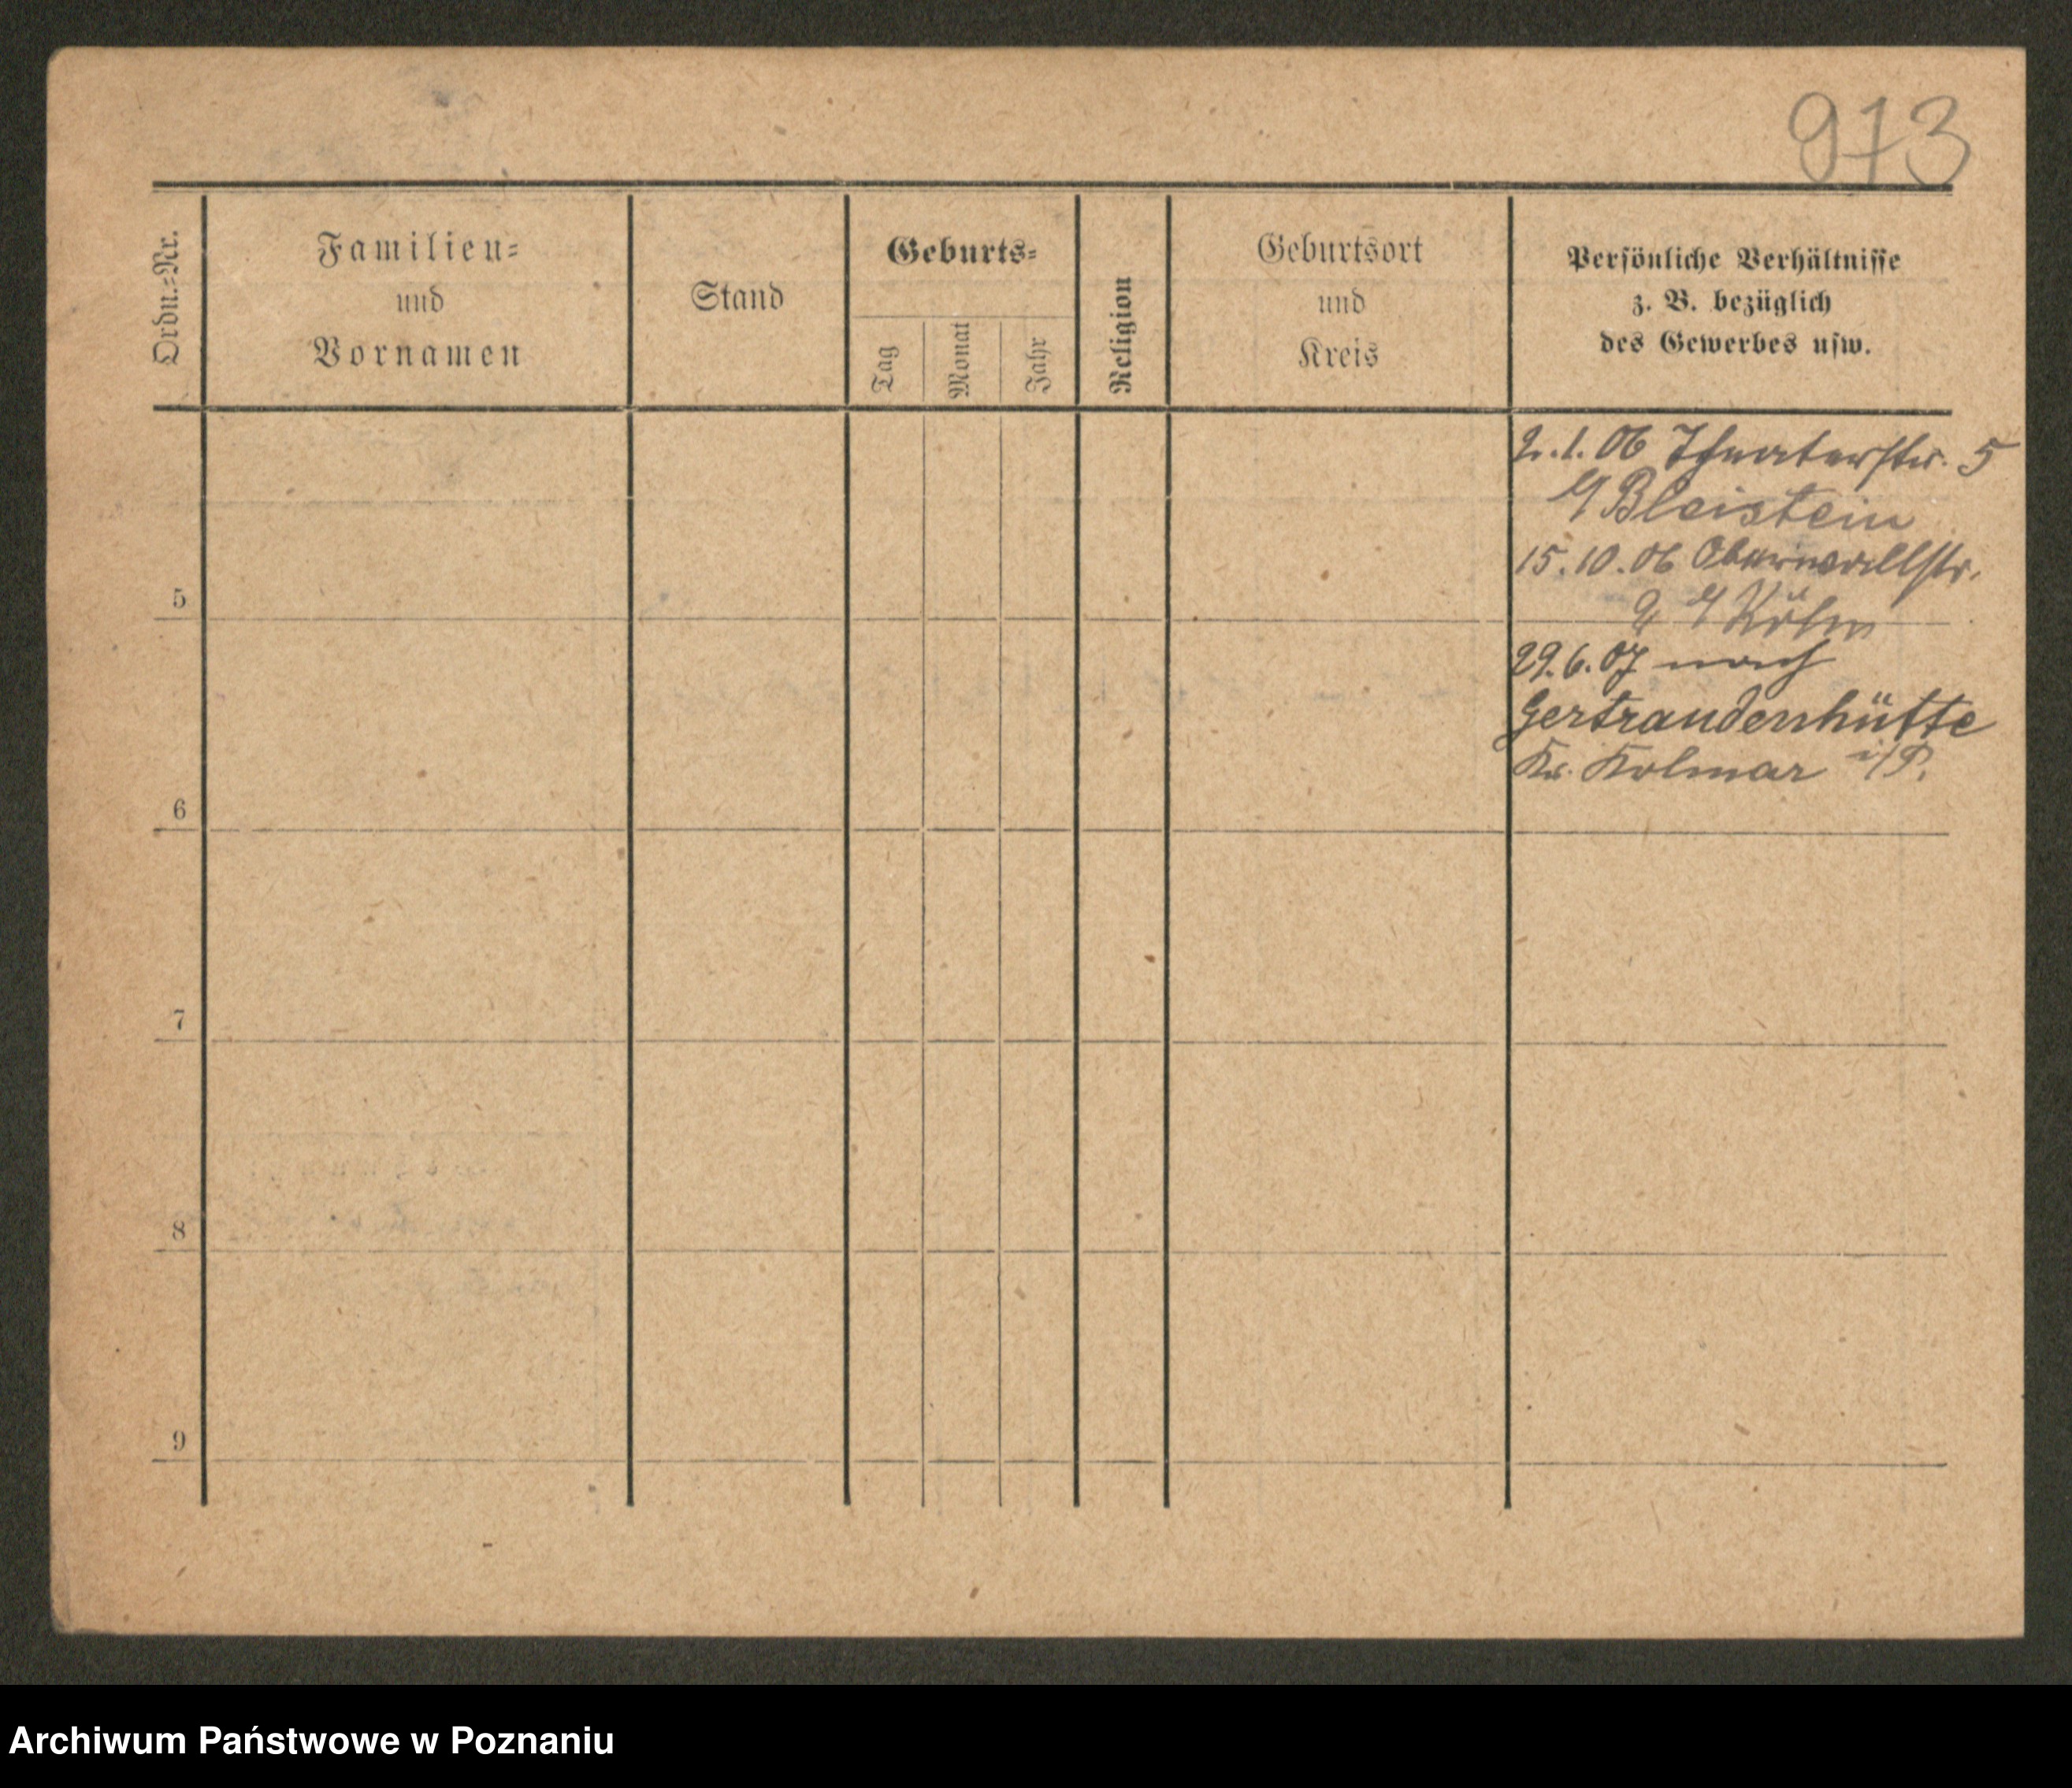 973
Ordn.-Nr.
Familien-
und
Vornamen
Stand
Geburts-
Tag
Monat
Jahr
Religion
Geburtsort
und
Kreis
Persönliche Verhältnisse
z. B. bezüglich
des Gewerbes usw.
2.1.06 Theaterstr. 5
Bleistein
15.10.06 Oberwallstr.
29.6.07 nach
Gertraudenhütte
Kr. Kolmar i/P.
5
6
7
8
9
Archiwum Państwowe w Poznaniu